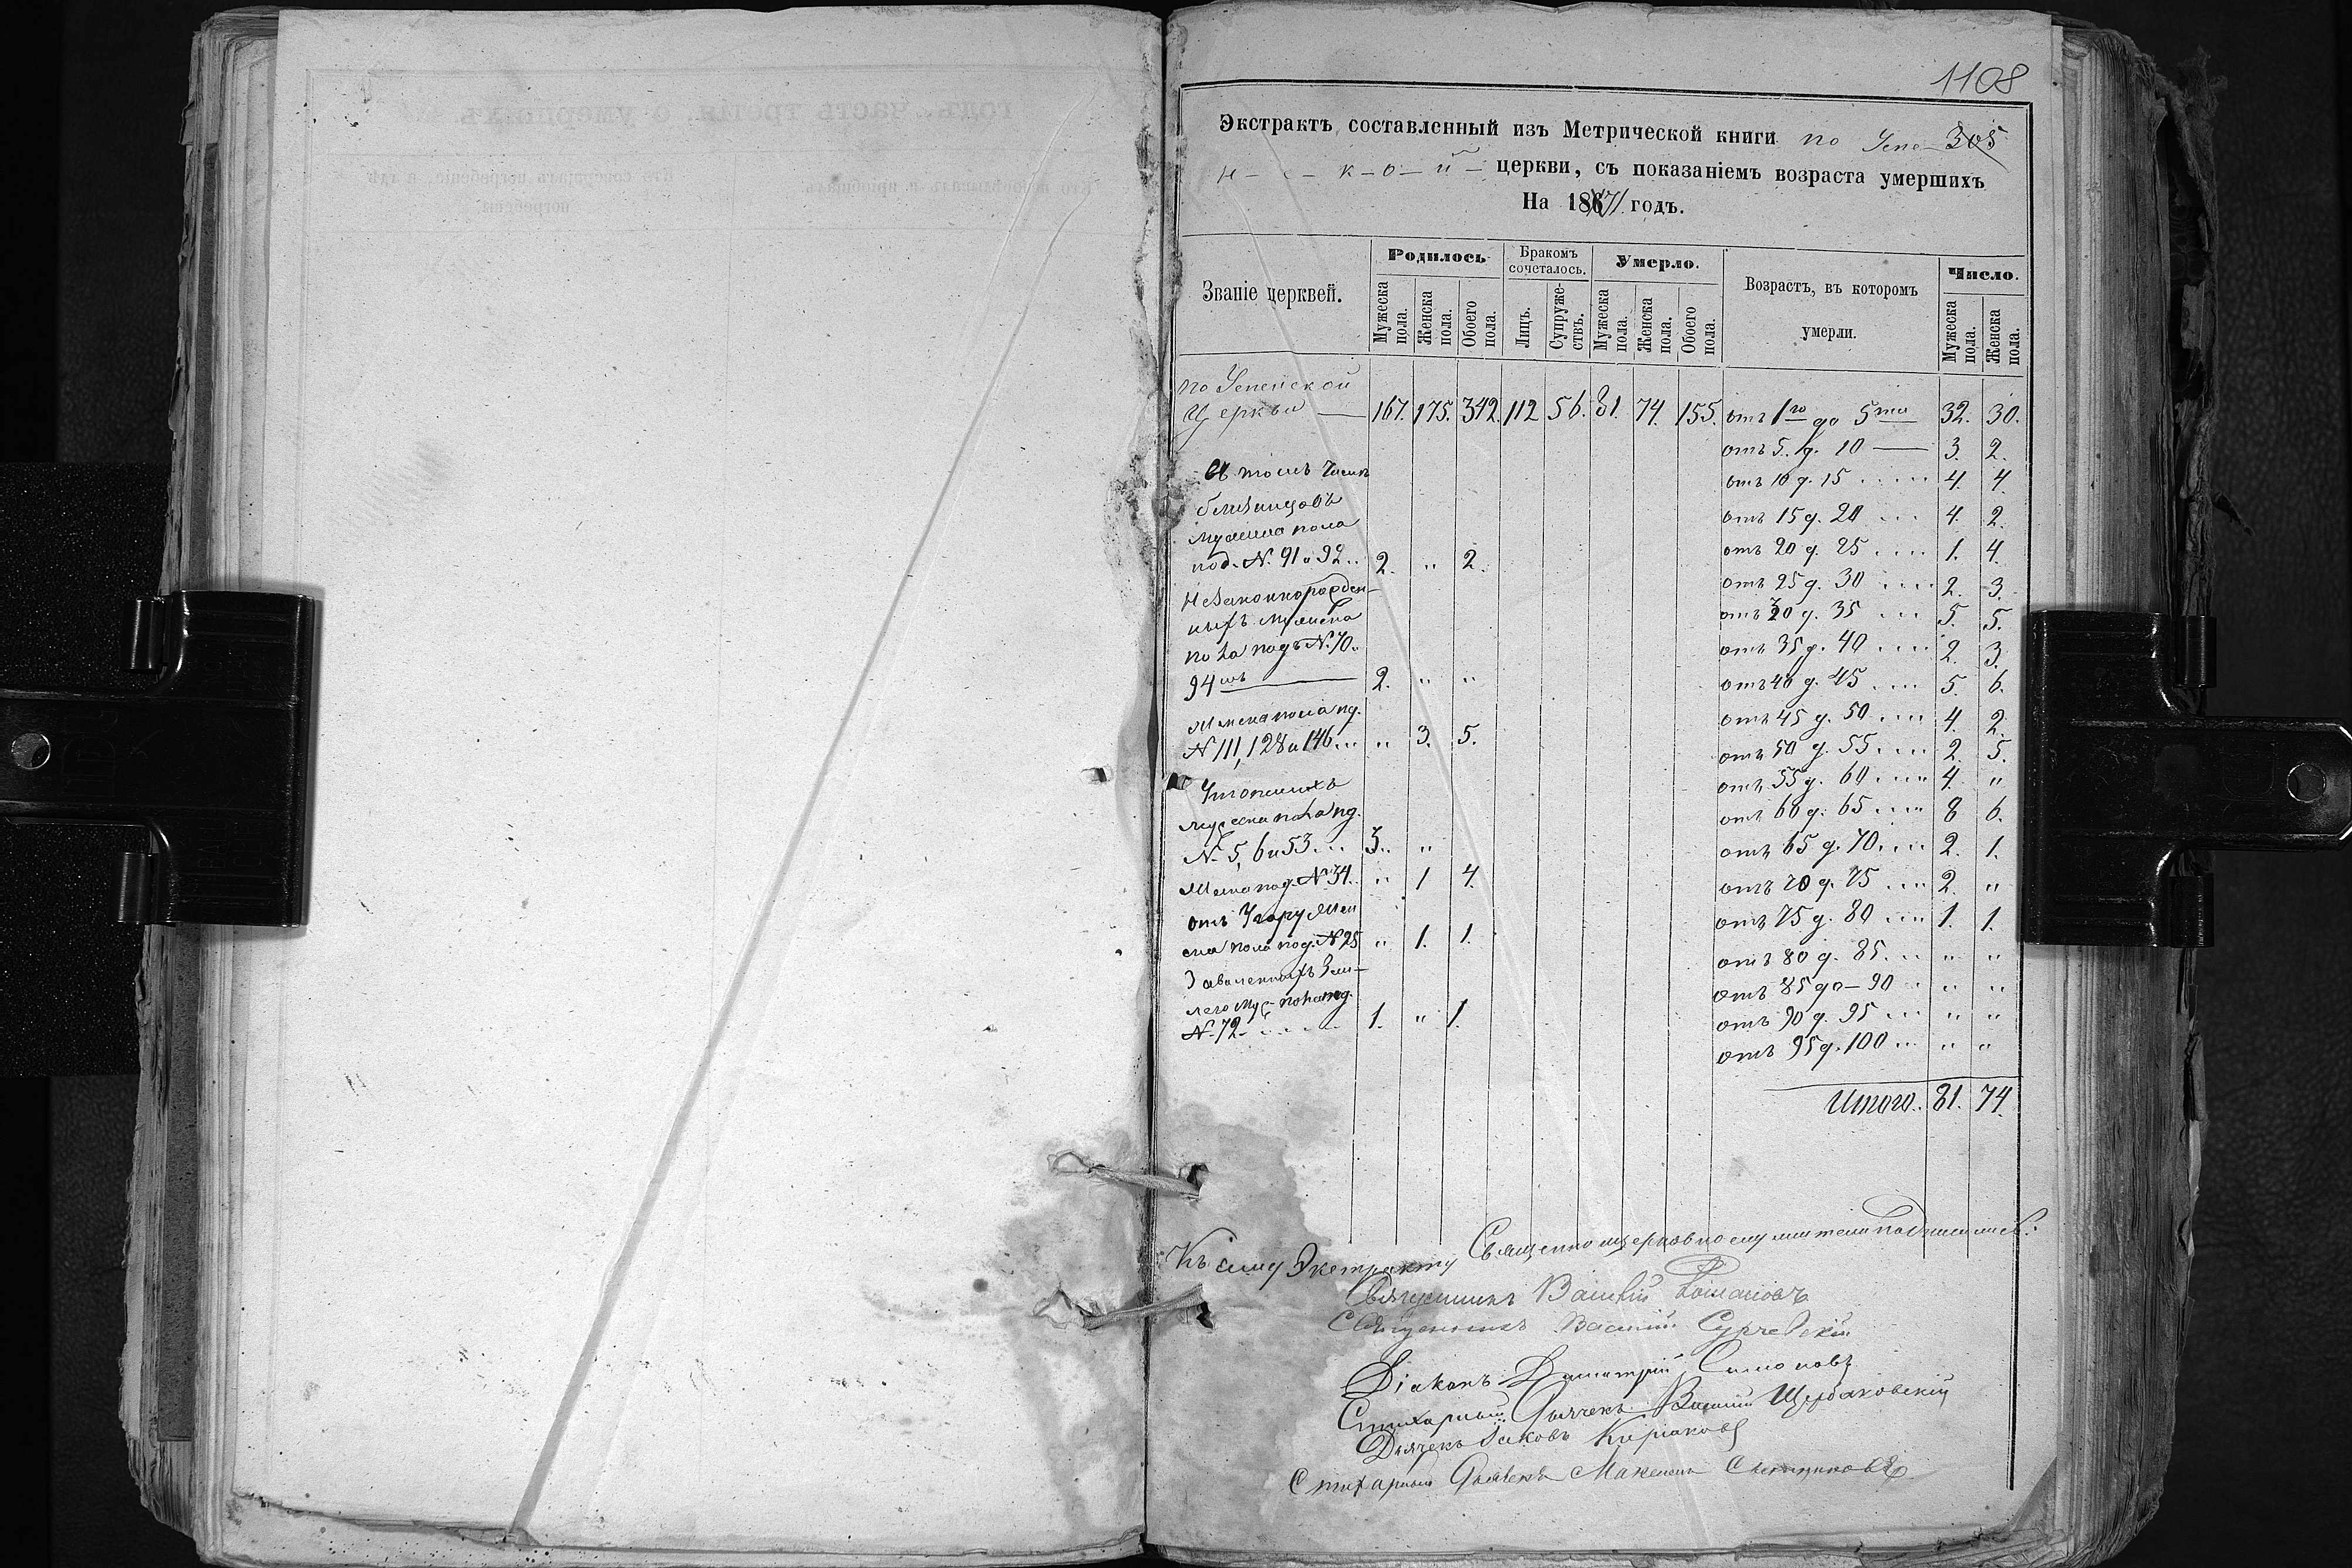 1108
Экстрактъ составленный изъ Метрической книги по Успе- 305
н - с - к - о - й - церкви, съ показаніемъ возраста умершихъ
На 1871 годъ.
Званіе церквей. Родилось Бракомъ сочеталось. Умерло. Возрастъ, въ которомъ умерли. Число.
Мужеска пола. Женска пола. Обоего пола. Лицъ. Супружествъ. Мужеска пола. Женска пола. Обоего пола. Мужеска пола. Женска пола.
по Успенской
Церкви — 167. 175. 342. 112 56. 81. 74. 155. отъ 1го до 5ти — 32. 30.
отъ 5. д. 10 — 3. 2.
В томъ числѣ
отъ 10 д. 15 ..... 4. 4
близнцовъ
отъ 15 д. 20 ... 4. 2.
мужеска пола
под. N. 91 и 92.. 2. " 2.
отъ 20 д. 25 .... 1. 4.
отъ 25 д. 30 .... 2. 3.
Незаконнорожден-
ныхъ мужеска
отъ 30 д. 35 ... 5. 5.
пола подъ N. 70.
отъ 35 д. 40 .... 2. 3.
94мъ — 2. " "
отъ 40 д. 45 .... 5. 6.
Женска пола пд.
отъ 45 д. 50 .... 4. 2.
N 111, 128 и 146... " 3. 5.
отъ 50 д. 55 .... 2. 5.
отъ 55 д. 60 .... 4. "
мужеска пола пд.
отъ 60 д. 65 .... 8 6.
N. 5, 6 и 53 ... 3. "
отъ 65 д. 70 .... 2. 1.
Женска под. N. 34. " 1 4.
отъ 70 д. 75 .... 2. "
отъ Угару Жен
отъ 75 д. 80 .... 1. 1.
ска пола под. N 25 " 1. 1.
отъ 80 д. 85. .. " "
Заваленныхъ Зем-
отъ 85 до — 90 .. " "
лею муж- пола пд.
отъ 90 д. 95 ... " "
N. 72. ..... 1. " 1.
отъ 95 д. 100 ... " "
Итого. 81. 74.
Къ сему Экстракту Священноцерковнослужители подписались:
Священникъ Василій Романовъ
Священникъ Василій
Діаконъ Димитрій Симоновъ
Стихарный Дьячекъ Василій Щербаковскій
Дьячекъ Іаковъ Киріаковъ
Стихарный Дьячекъ Максимъ